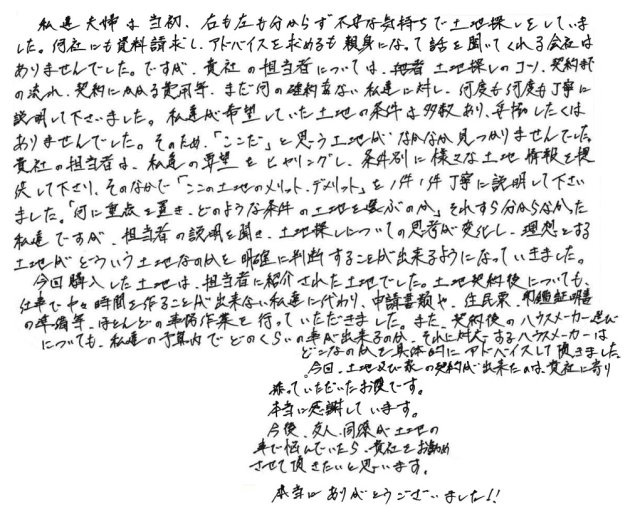 私達夫婦は当初、右も左も分からず不安な気持ちで土地探しをしていま
した。何社にも資料請求し、アドバイスを求めるも親身になって話を聞いてくれる会社は
ありませんでした。ですが、貴社の担当者については、土地探しのコツ、契約まで
の流れ、契約にかかる費用等、まだ何の確約もない私達に対し、何度も何度も丁寧に
説明して下さいました。私達が希望していた土地の条件は多数あり、妥協したくは
ありませんでした。そのため、「ここだ」と思う土地がなかなか見つかりませんでした。
貴社の担当者は、私達の要望をヒヤリングし、条件別に様々な土地情報を提
供して下さり、そのなかで「ここの土地のメリット、デメリット」を1件1件丁寧に説明して下さい
ました。「何に重点を置き、どのような条件の土地を選ぶのか」それすら分からなかった
私達ですが、担当者の説明を聞き、土地探しについての思考が変化し、理想とする
土地がどういう土地なのかを明確に判断することが出来るようになっていきました。
今回購入した土地は、担当者に紹介された土地でした。土地契約後についても、
仕事で中々時間を作ることが出来ない私達に代わり、申請書類や、住民票、印鑑証明書
の準備等、ほとんどの事務作業を行っていただきました。また、契約後のハウスメーカー選び
についても、私達の予算内でどのくらいの事が出来るのか、それに対応するハウスメーカーは
どこなのかを具体的にアドバイスして頂きました。
今回、土地及び家の契約が出来たのは、貴社に寄り
添っていただいたお陰です。
本当に感謝しています。
今後、友人、同僚が土地の
事で悩んでいたら、貴社をお勧め
させて頂きたいと思います。
本当にありがとうございました!!